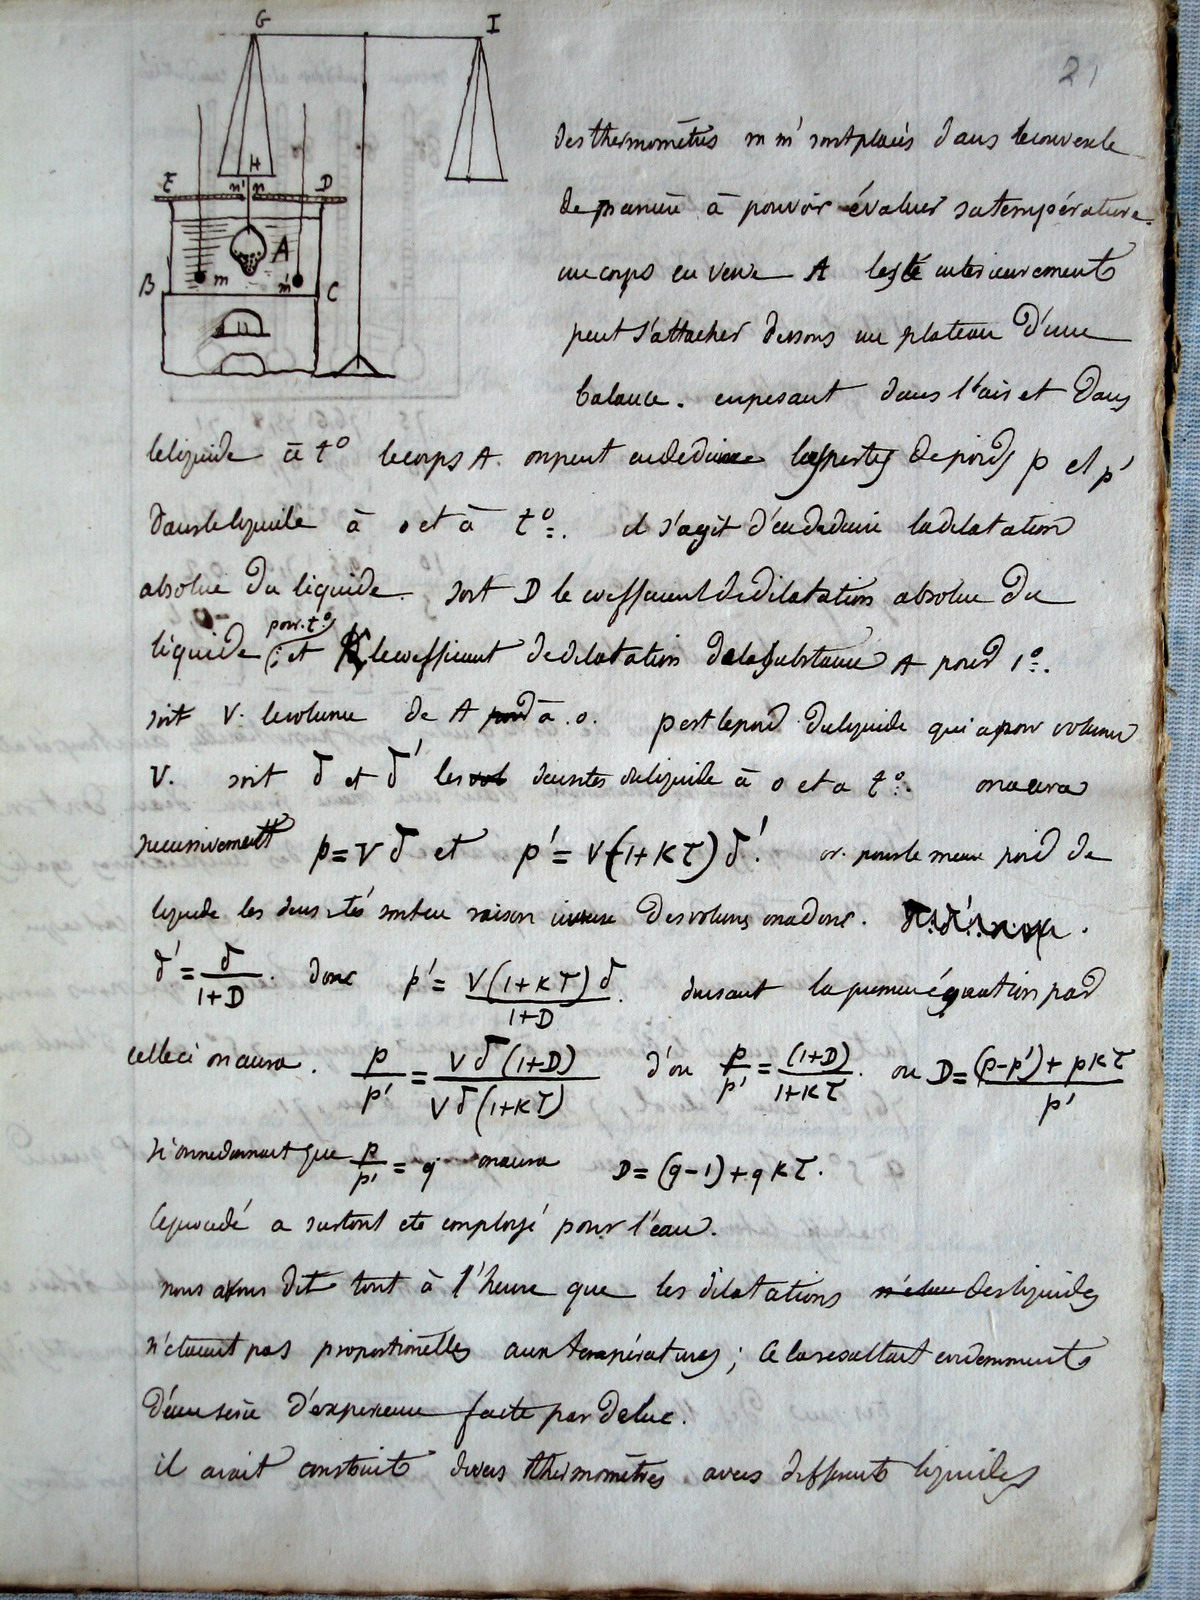 G I
21
des thermomètres m m' sont placés dans le couvercle
E H n' n D
de maniere à pouvoir évaluer sa température.
A
un corps en verre A lesté interieurement
B m m' C
peut s'attacher dessous un plateau d'une
balance. en pesant dans l'air et dans
le liquide à t° le corps A. on peut en deduire les pertes de poids p et p'
dans le liquide à 0 et à t°. il s'agit d'en deduire la dilatation
absolue du liquide. soit D le coefficient de dilatation absolue du
liquide pour t° ; et K le coefficient de dilatation de la substance A pour 1°.
soit V. le volume de A à 0. p est le poid du liquide qui a pour volume
V. soit δ et δ' les densités du liquide à 0 et a t°. on aura
successivement p = V δ et p' = V(1+Kτ) δ'. or. pour le meme poid de
liquide les densités sont en raison inverse des volumes on a donc.
δ' = δ/(1+D). donc p' = V(1+Kτ)δ/(1+D). divisant la premiere équation par
celle ci on aura. p/p' = Vδ(1+D)/Vδ(1+Kτ) d'ou p/p' = (1+D)/(1+Kτ). ou D = ((p-p') + pKτ)/p'
si on connait que p/p' = q on aura D = (q-1) + qKτ.
Ce procédé a surtout ete employé pour l'eau.
nous avons dit tout à l'heure que les dilatations des liquides
n'etaient pas proportionelles aux températures ; Cela resultait evidemment
d'une serie d'experience faite par Deluc.
il avait construit divers thermomètres avec differents liquides